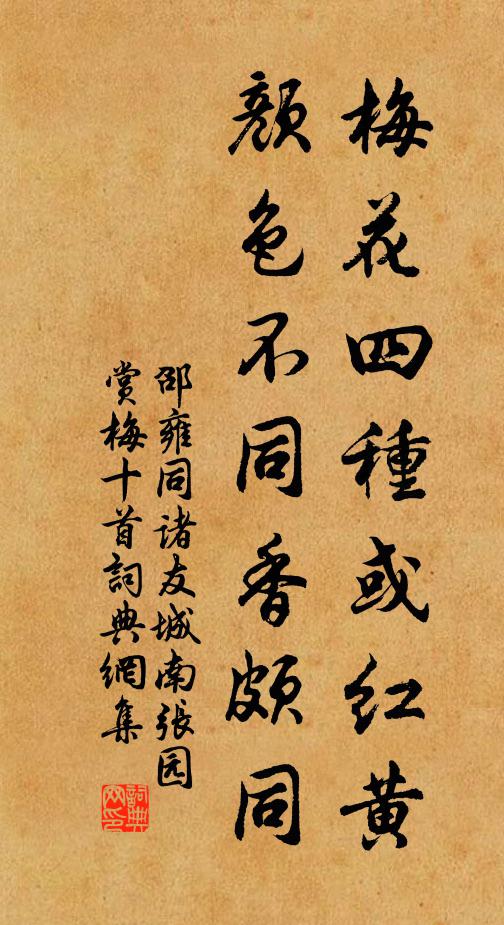 梅花四種或红黄
颜色不同香頗同
邵雍同诸友城南張园
賞梅十首詞典網集
詞典网印